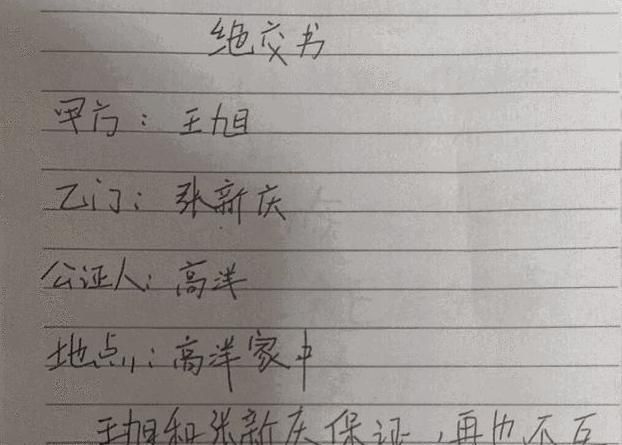 绝交书
甲方：王旭
乙门：张新庆
公证人：高洋
地点：高洋家中
王旭和张新庆保证，再也不互